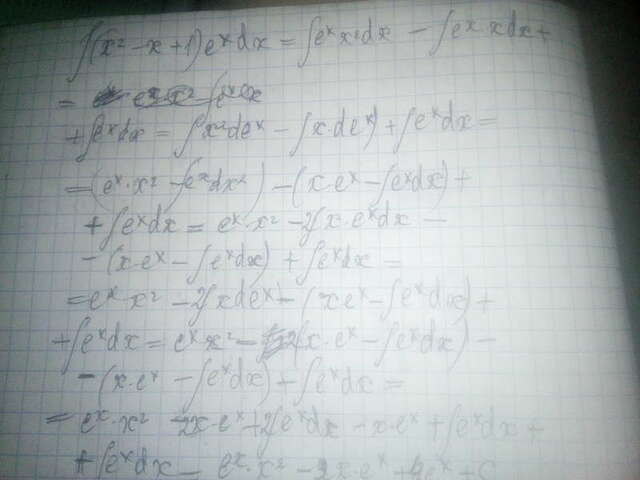 ∫(x² - x + 1)eˣdx = ∫eˣx²dx - ∫eˣ·xdx +
=
+ ∫eˣdx = ∫x²deˣ - ∫x·deˣ) + ∫eˣdx =
= (eˣ·x² - ∫eˣdx²) - (x·eˣ - ∫eˣdx) +
+ ∫eˣdx = eˣ·x² - 2∫x·eˣdx -
- (x·eˣ - ∫eˣdx) + ∫eˣdx =
= eˣ·x² - 2∫xdeˣ - (x·eˣ - ∫eˣdx) +
+ ∫eˣdx = eˣx² - 2(x·eˣ - ∫eˣdx) -
- (x·eˣ - ∫eˣdx) + ∫eˣdx =
= eˣ·x² - 2x·eˣ + 2∫eˣdx - x·eˣ + ∫eˣdx +
+ ∫eˣdx = eˣ·x² - 3x·eˣ + 4eˣ + C